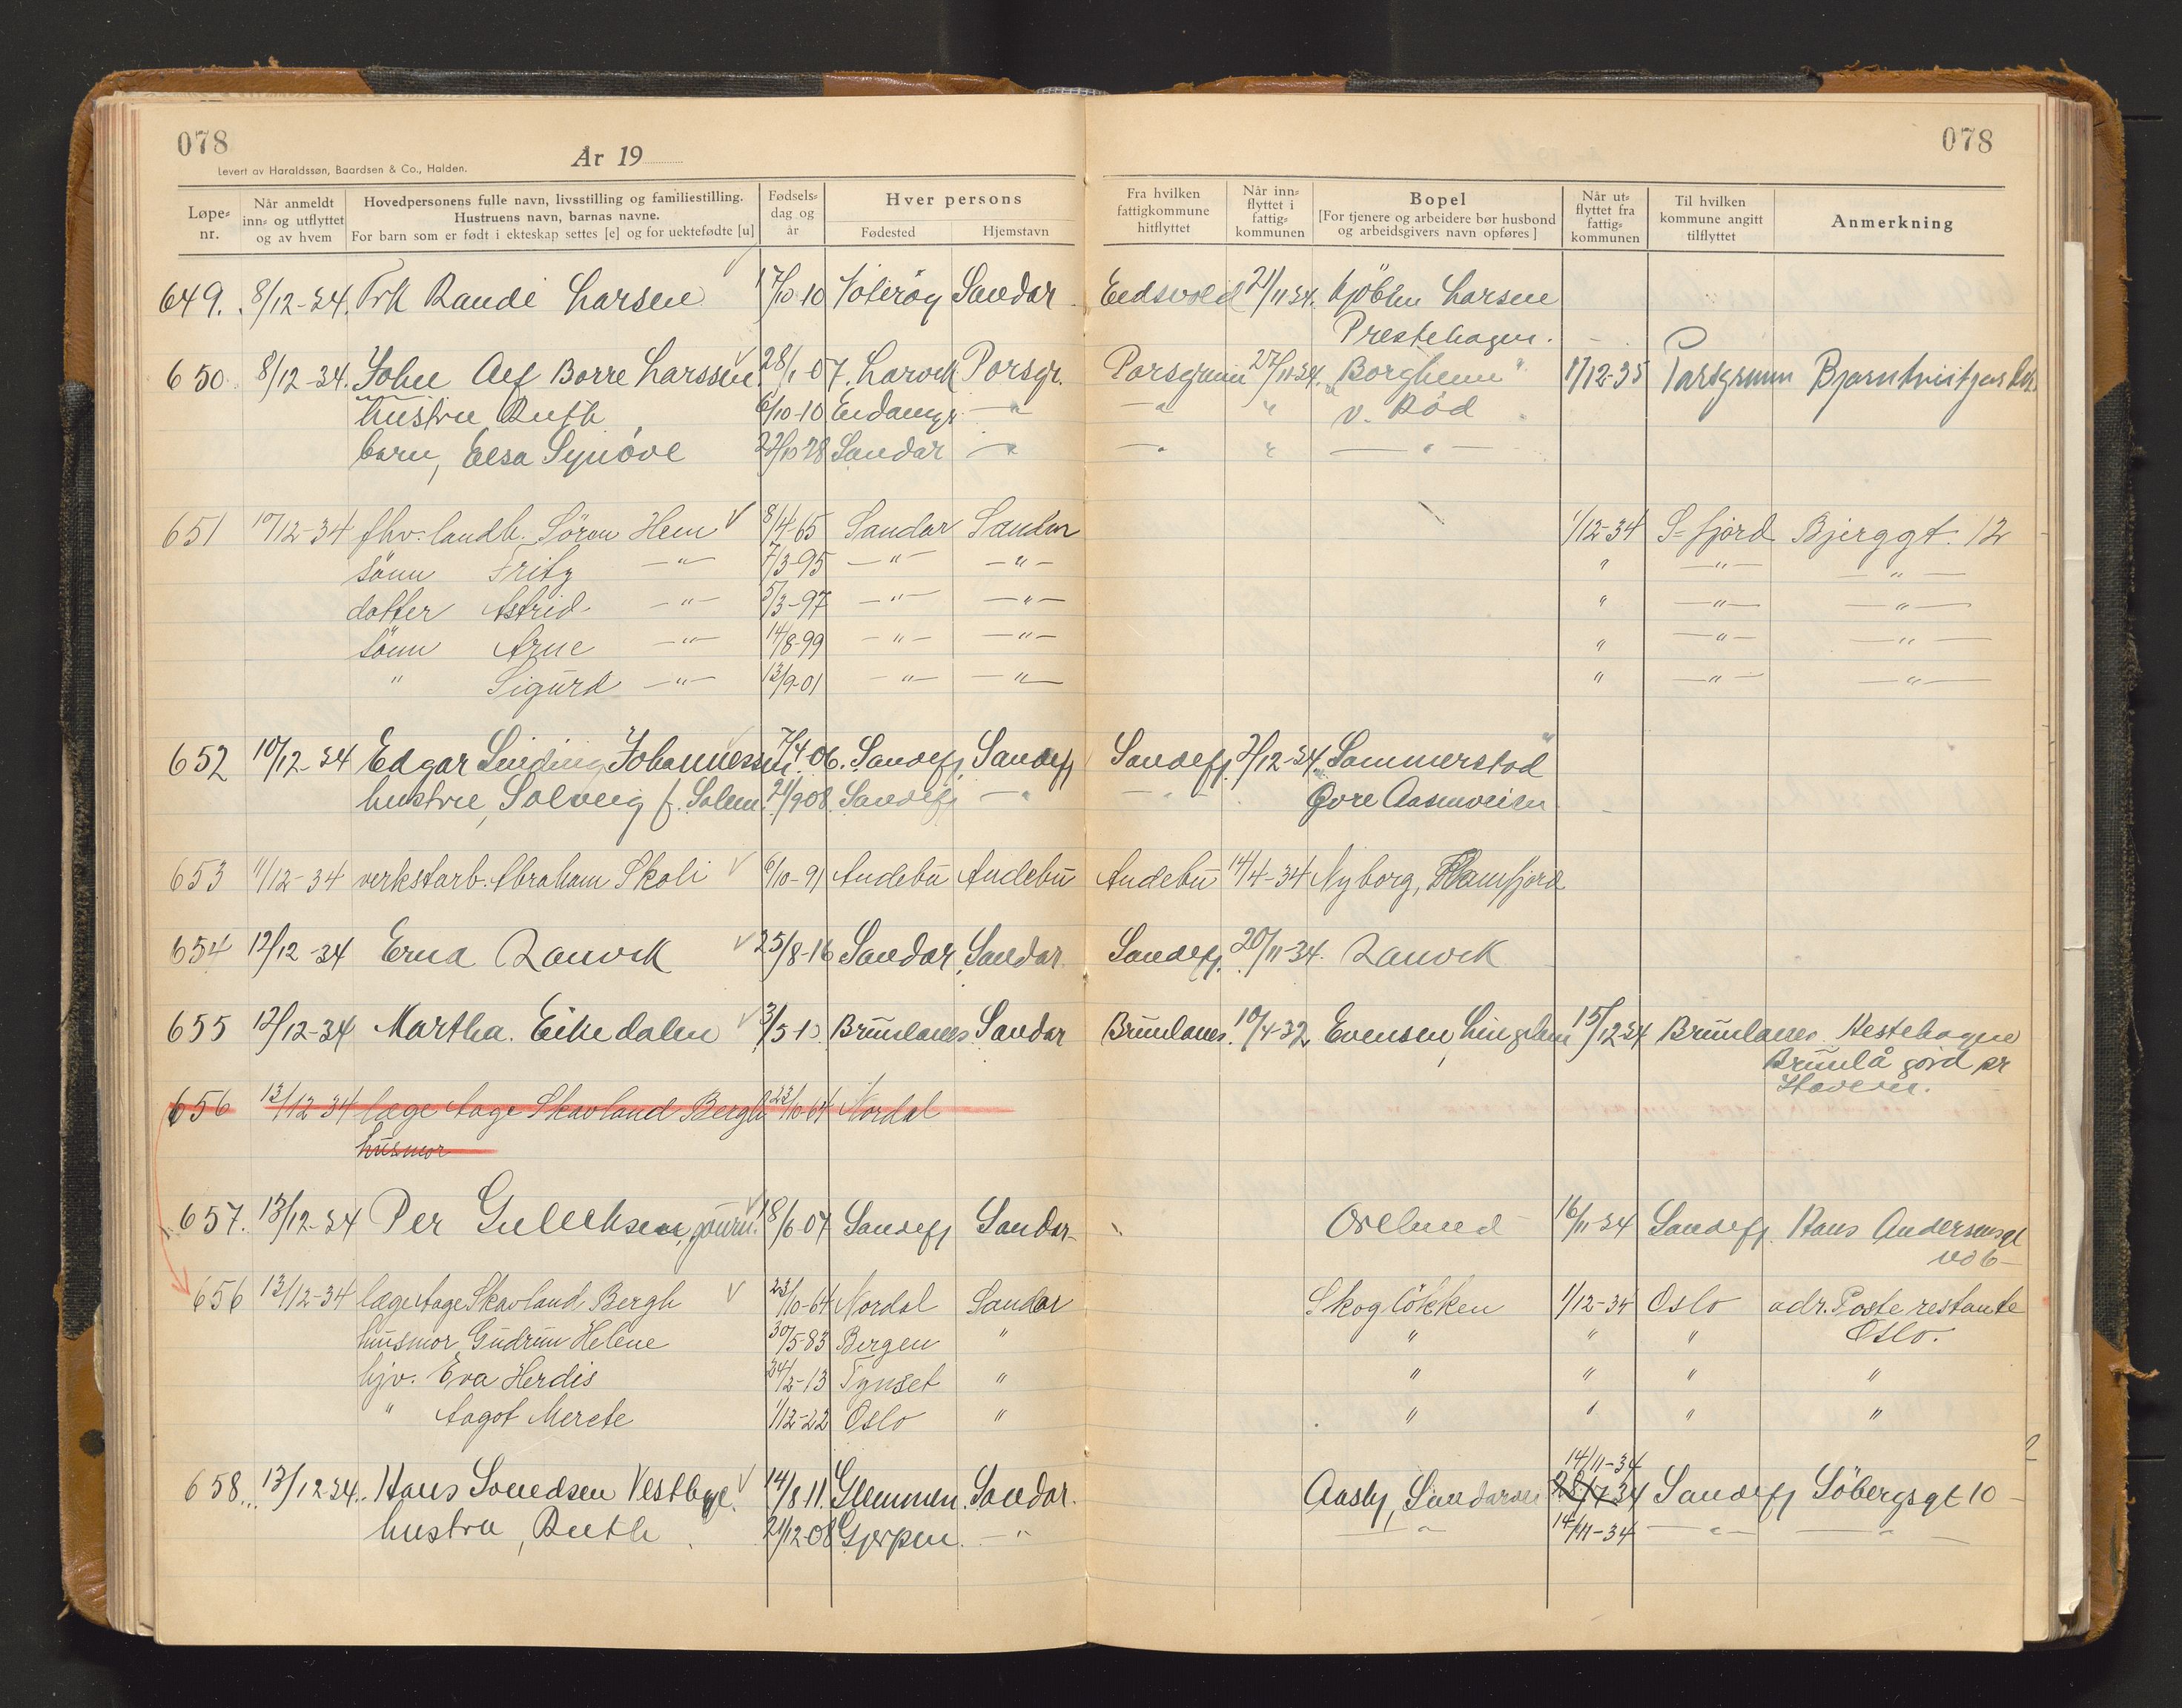 078
År 19
078
Levert av Haraldssøn, Baardsen & Co., Halden.
Løpe-nr. Når anmeldt inn- og utflyttet og av hvem Hovedpersonens fulle navn, livsstilling og familiestilling. Hustruens navn, barnas navne. For barn som er født i ekteskap settes [e] og for uektefødte [u] Fødsels-dag og år Hver persons Fødested Hjemstavn Fra hvilken fattigkommune hitflyttet Når inn-flyttet i fattig-kommunen Bopel [For tjenere og arbeidere bør husbond og arbeidsgivers navn opføres] Når ut-flyttet fra fattig-kommunen Til hvilken kommune angitt tilflyttet Anmerkning
649. 8/12-34. Frk Randi Larsen 17/10-10 Sandar Eidsvold 21/11-34. Larsen
Prestehagen.
650. 8/12-34. John Alf Borre Larssen 28/1-07. Larvik Porsgr. Porsgrunn 27/11-34. "Borgheim" 1/12-35 Porsgrunn
hustru Ruth 6/10-10 Eidanger —"— —"— " v. Rød
barn, Elsa Synöve 27/10 28 Sandar —"— —"— " —"—
651 10/12-34 fhv. landh. Sören Hem √ 8/4-65 Sandar Sandar 1/12-34 S-fjord Bjerggt. 12
sönn Fritz —"— 7/3-95 —"— —"— " —"— —"—
datter Astrid —"— 5/3-97 —"— —"— " —"— —"—
sönn Arne —"— 14/8-99 —"— —"— " —"— —"—
" Sigurd —"— 13/9-01 —"— —"— " —"— —"—
652 10/12-34 Edgar Sinding Johannessen 7/4-06. Sandefj. Sandefj Sandefj. 3/12-34. "Sommerstad"
hustru, Solveig f. Solem. 21/9 08 Sandefj —"— —"— Övre Aasenveien
653 11/12-34 verkstarb. Abraham Skoli √ 6/10-91 Andebu Andebu Andebu 14/4-34 Nyborg, Framfjord
654 12/12-34 Erna Ranvik √ 25/8-16 Sandar Sandar. Sandefj. 20/11-34. Ranvik
655 12/12-34 Martha. Eikedalen √ 3/5-13. Brunlanes Sandar Brunlanes. 10/4-32 Evensen, Lingelem 15/12-34 Brunlanes Hestehagen
Brunlå gård pr
Stavern.
656 13/12-34 læge Aage Skavland Bergh 23/10-64 Nordal
husmor
657. 13/12-34 Per Gulliksen, journ. √ 18/6 07 Sandefj Sandar 16/11-34 Sandefj. Hans Andersensgt
no 6-
656 13/12-34 læge Aage Skavland Bergh √ 23/10-64 Nordal Sandar Skoglökken 1/12-34 Oslo adr. Poste restante
husmor Gudrun Helene 30/5-83 Bergen " " " " Oslo.
hjv. Eva Herdis 24/2-13 Tynset " " " " "
" Aagot Merete 1/12-22 Oslo " " " " "
14/11-34
658. 13/12-34. Hans Svendsen Vestbye. √ 14/8-11. Glemmen. Sandar. Aasly, Sandarveien Sandefj Söbergsgt 10 -
hustru, Ruth 21/12-08 Gjerpen. —"— —"— 14/11-34 —"— —"—